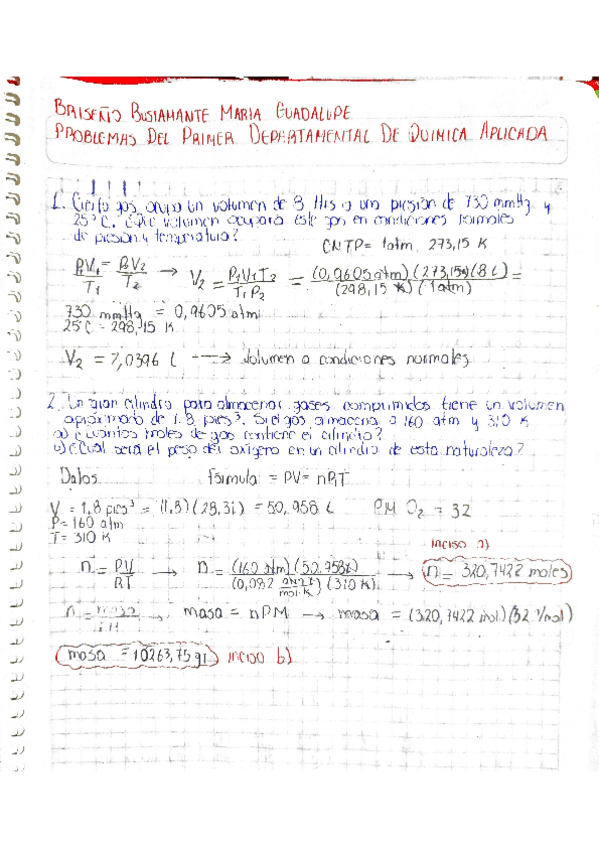 BRISEÑO BUSTAMANTE MARIA GUADALUPE
PROBLEMAS DEL PRIMER DEPARTAMENTAL DE QUIMICA APLICADA
1. Cierto gas ocupa un volumen de 8 lts a una presion de 730 mmHg y
25°C. ¿Qué volumen ocupará este gas en condiciones normales
de presion y temperatura?
CNTP= 1atm, 273,15 K
P₁V₁/T₁ = P₂V₂/T₂ → V₂ = P₁V₁T₂/T₁P₂ = (0,9605 atm)(273,15K)(8 L)/(298,15 K)(1atm) =
730 mmHg = 0,9605 atm
25°C = 298,15 K
V₂ = 7,0396 L → Volumen a condiciones normales
2. Un gran cilindro para almacenar gases comprimidos tiene un volumen
aproximado de 1.8 pies³. Si el gas almacena a 160 atm y 310 K
a) ¿Cuántos moles de gas contiene el cilindro?
b) ¿Cual será el peso del oxígeno en un cilindro de esta naturaleza?
Datos Formula = PV= nRT
V = 1,8 pies³ = (1,8)(28,31) = 50,958 L PM O₂ = 32
P= 160 atm
T= 310 K
inciso a)
n = PV/RT → n = (160 atm)(50.958L)/(0,082 atm·L/mol·K)(310 K) → n = 320,7422 moles
n = masa/PM → masa = nPM → masa = (320,7422 mol)(32 g/mol)
masa = 10263,75 g inciso b)